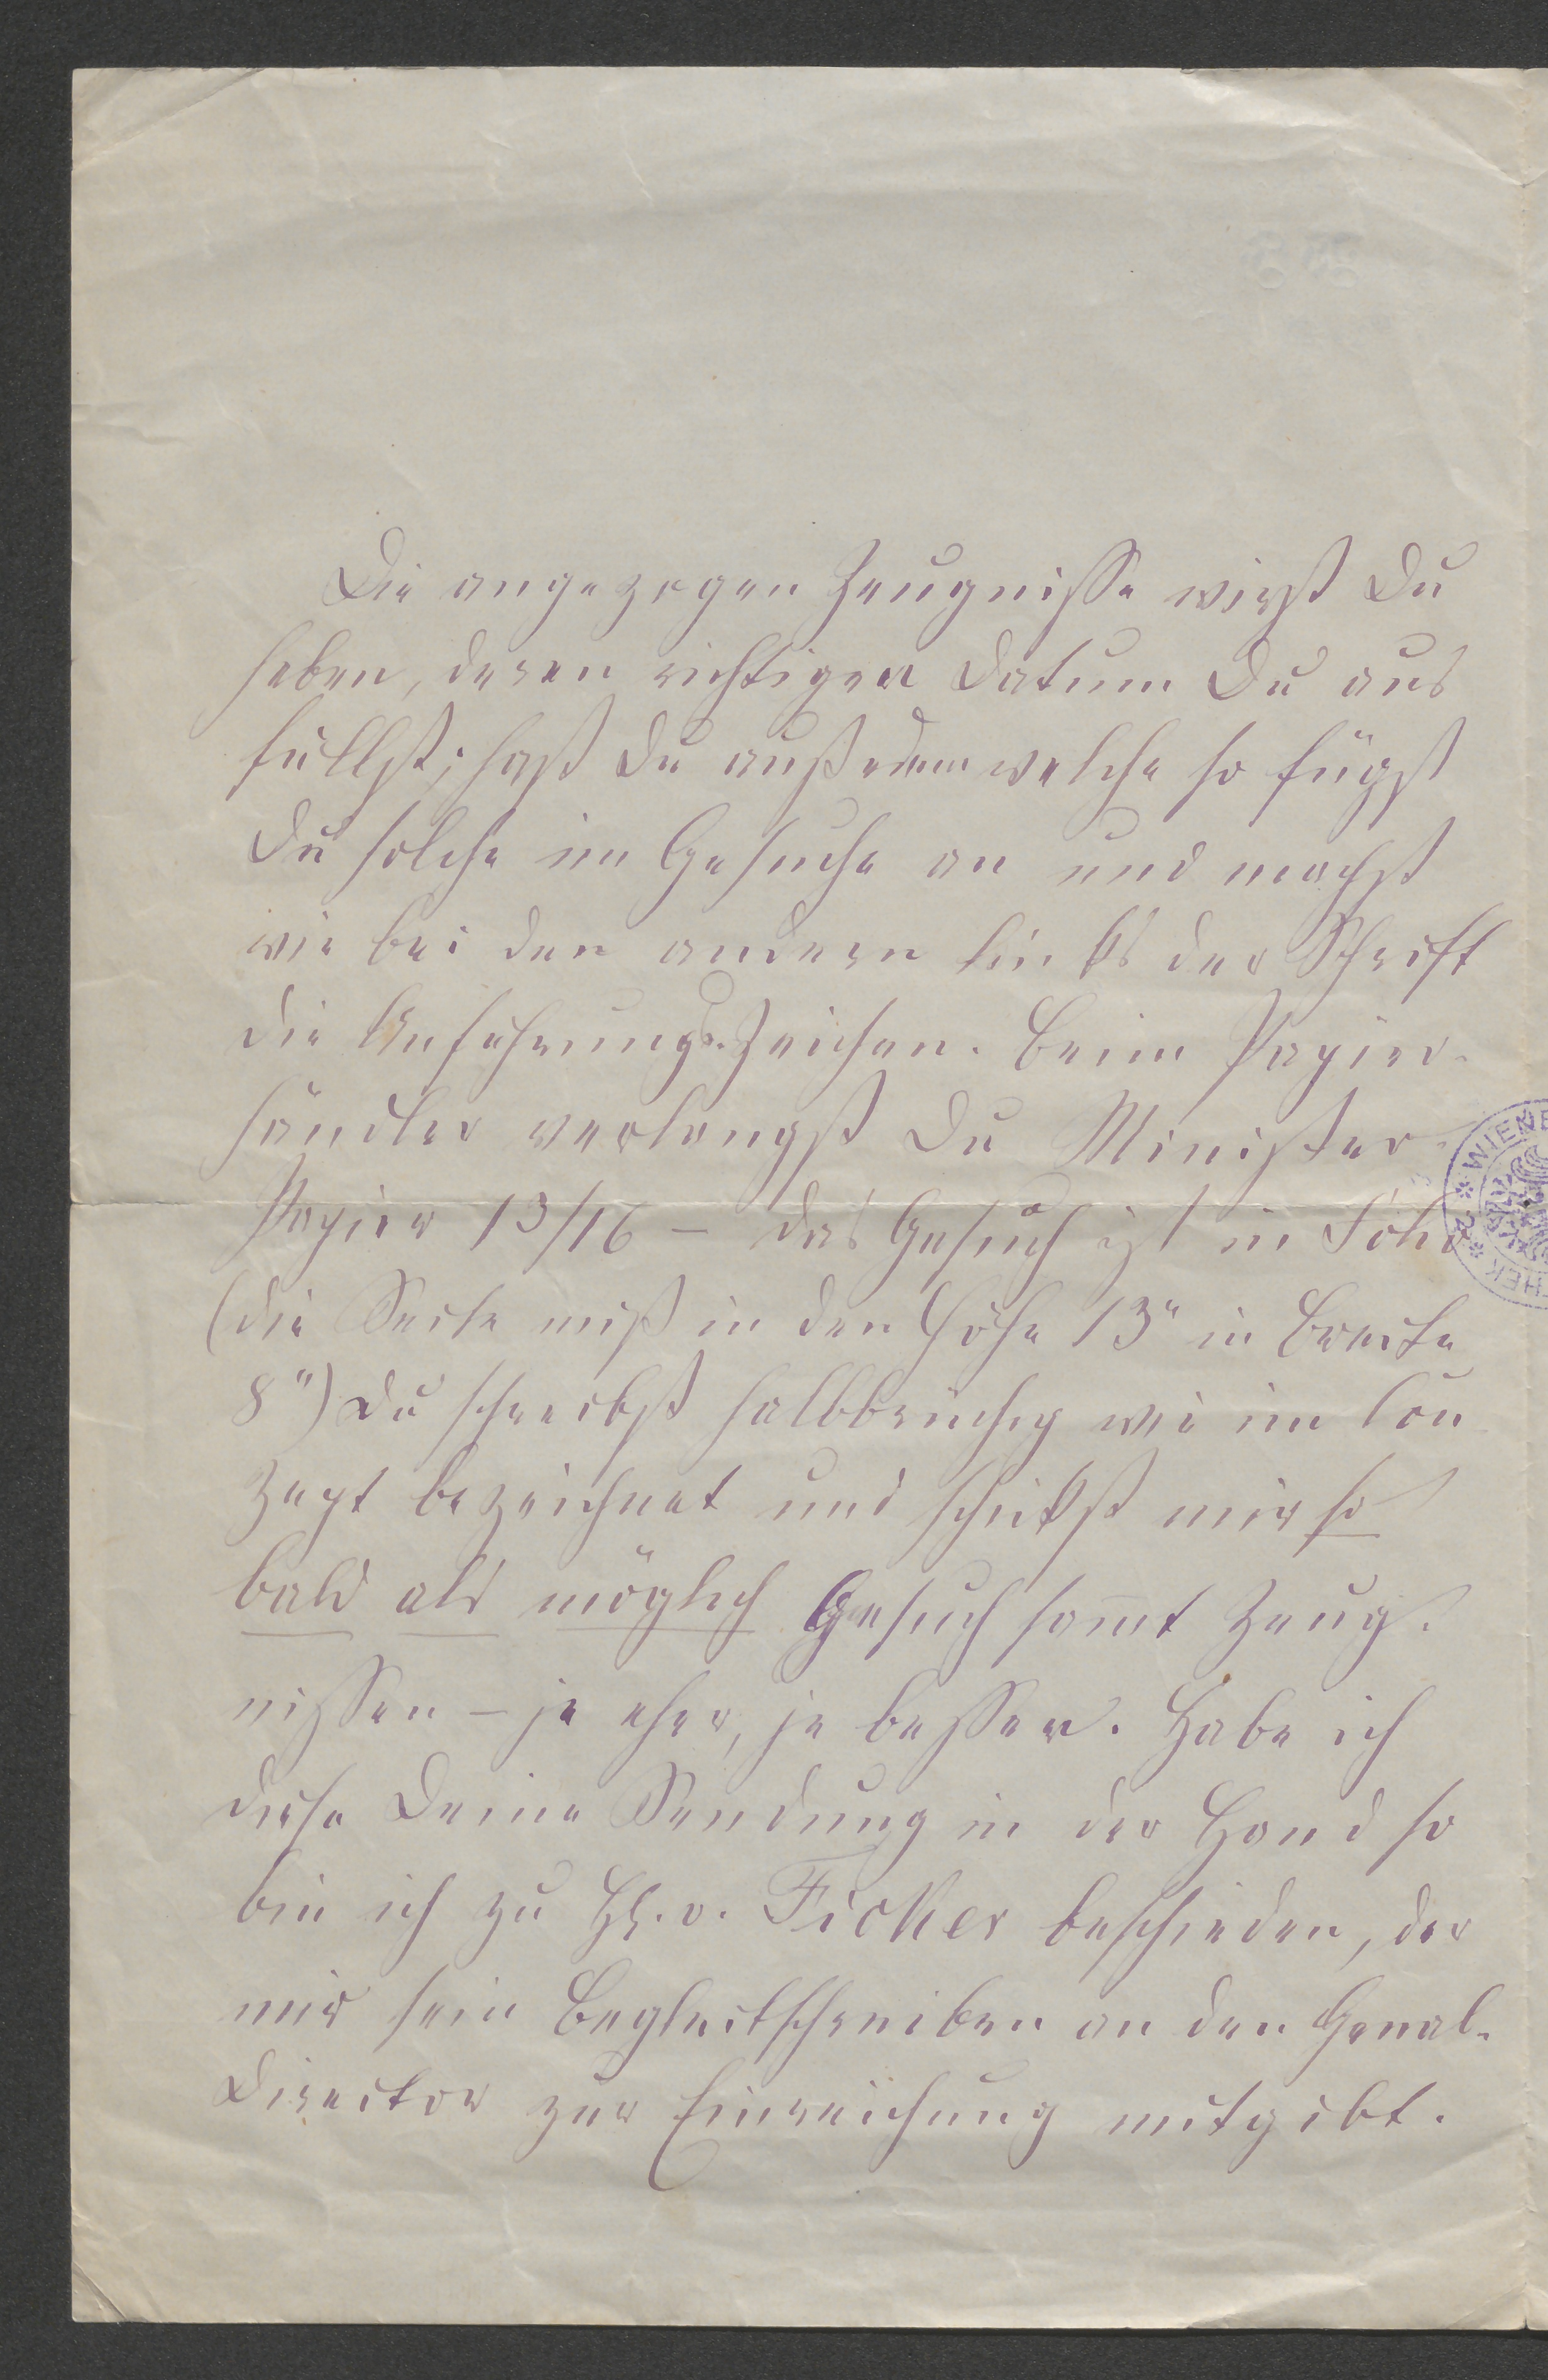 Die angezogen Zeugnisse wirst Du
haben, deren richtigen Datum Du aus
füllst; hast Du außerdem welche so fügst
Du solche im Gesuche an und machst
wie bei den andern links der Schrift
die Anführungs-Zeichen. Beim Papier-
händler verlangst Du Minister-
Papier 13/16 – das Gesuch ist in Folio
(die Seite miß in den Höhe 13" in Breite
8") Du schreibst halbbrüchig wie im Con
zept bezeichnet und schickst mir so
bald als möglich Gesuch sam̅t Zeug-
nissen – je eher, je besser. Habe ich
diese Deine Sendung in der Hand so
bin ich zu H. v. Ficker beschieden, der
mir sein Begleitschreiben an den Genal-
Director zur Einreichung mitgibt.
WIENE